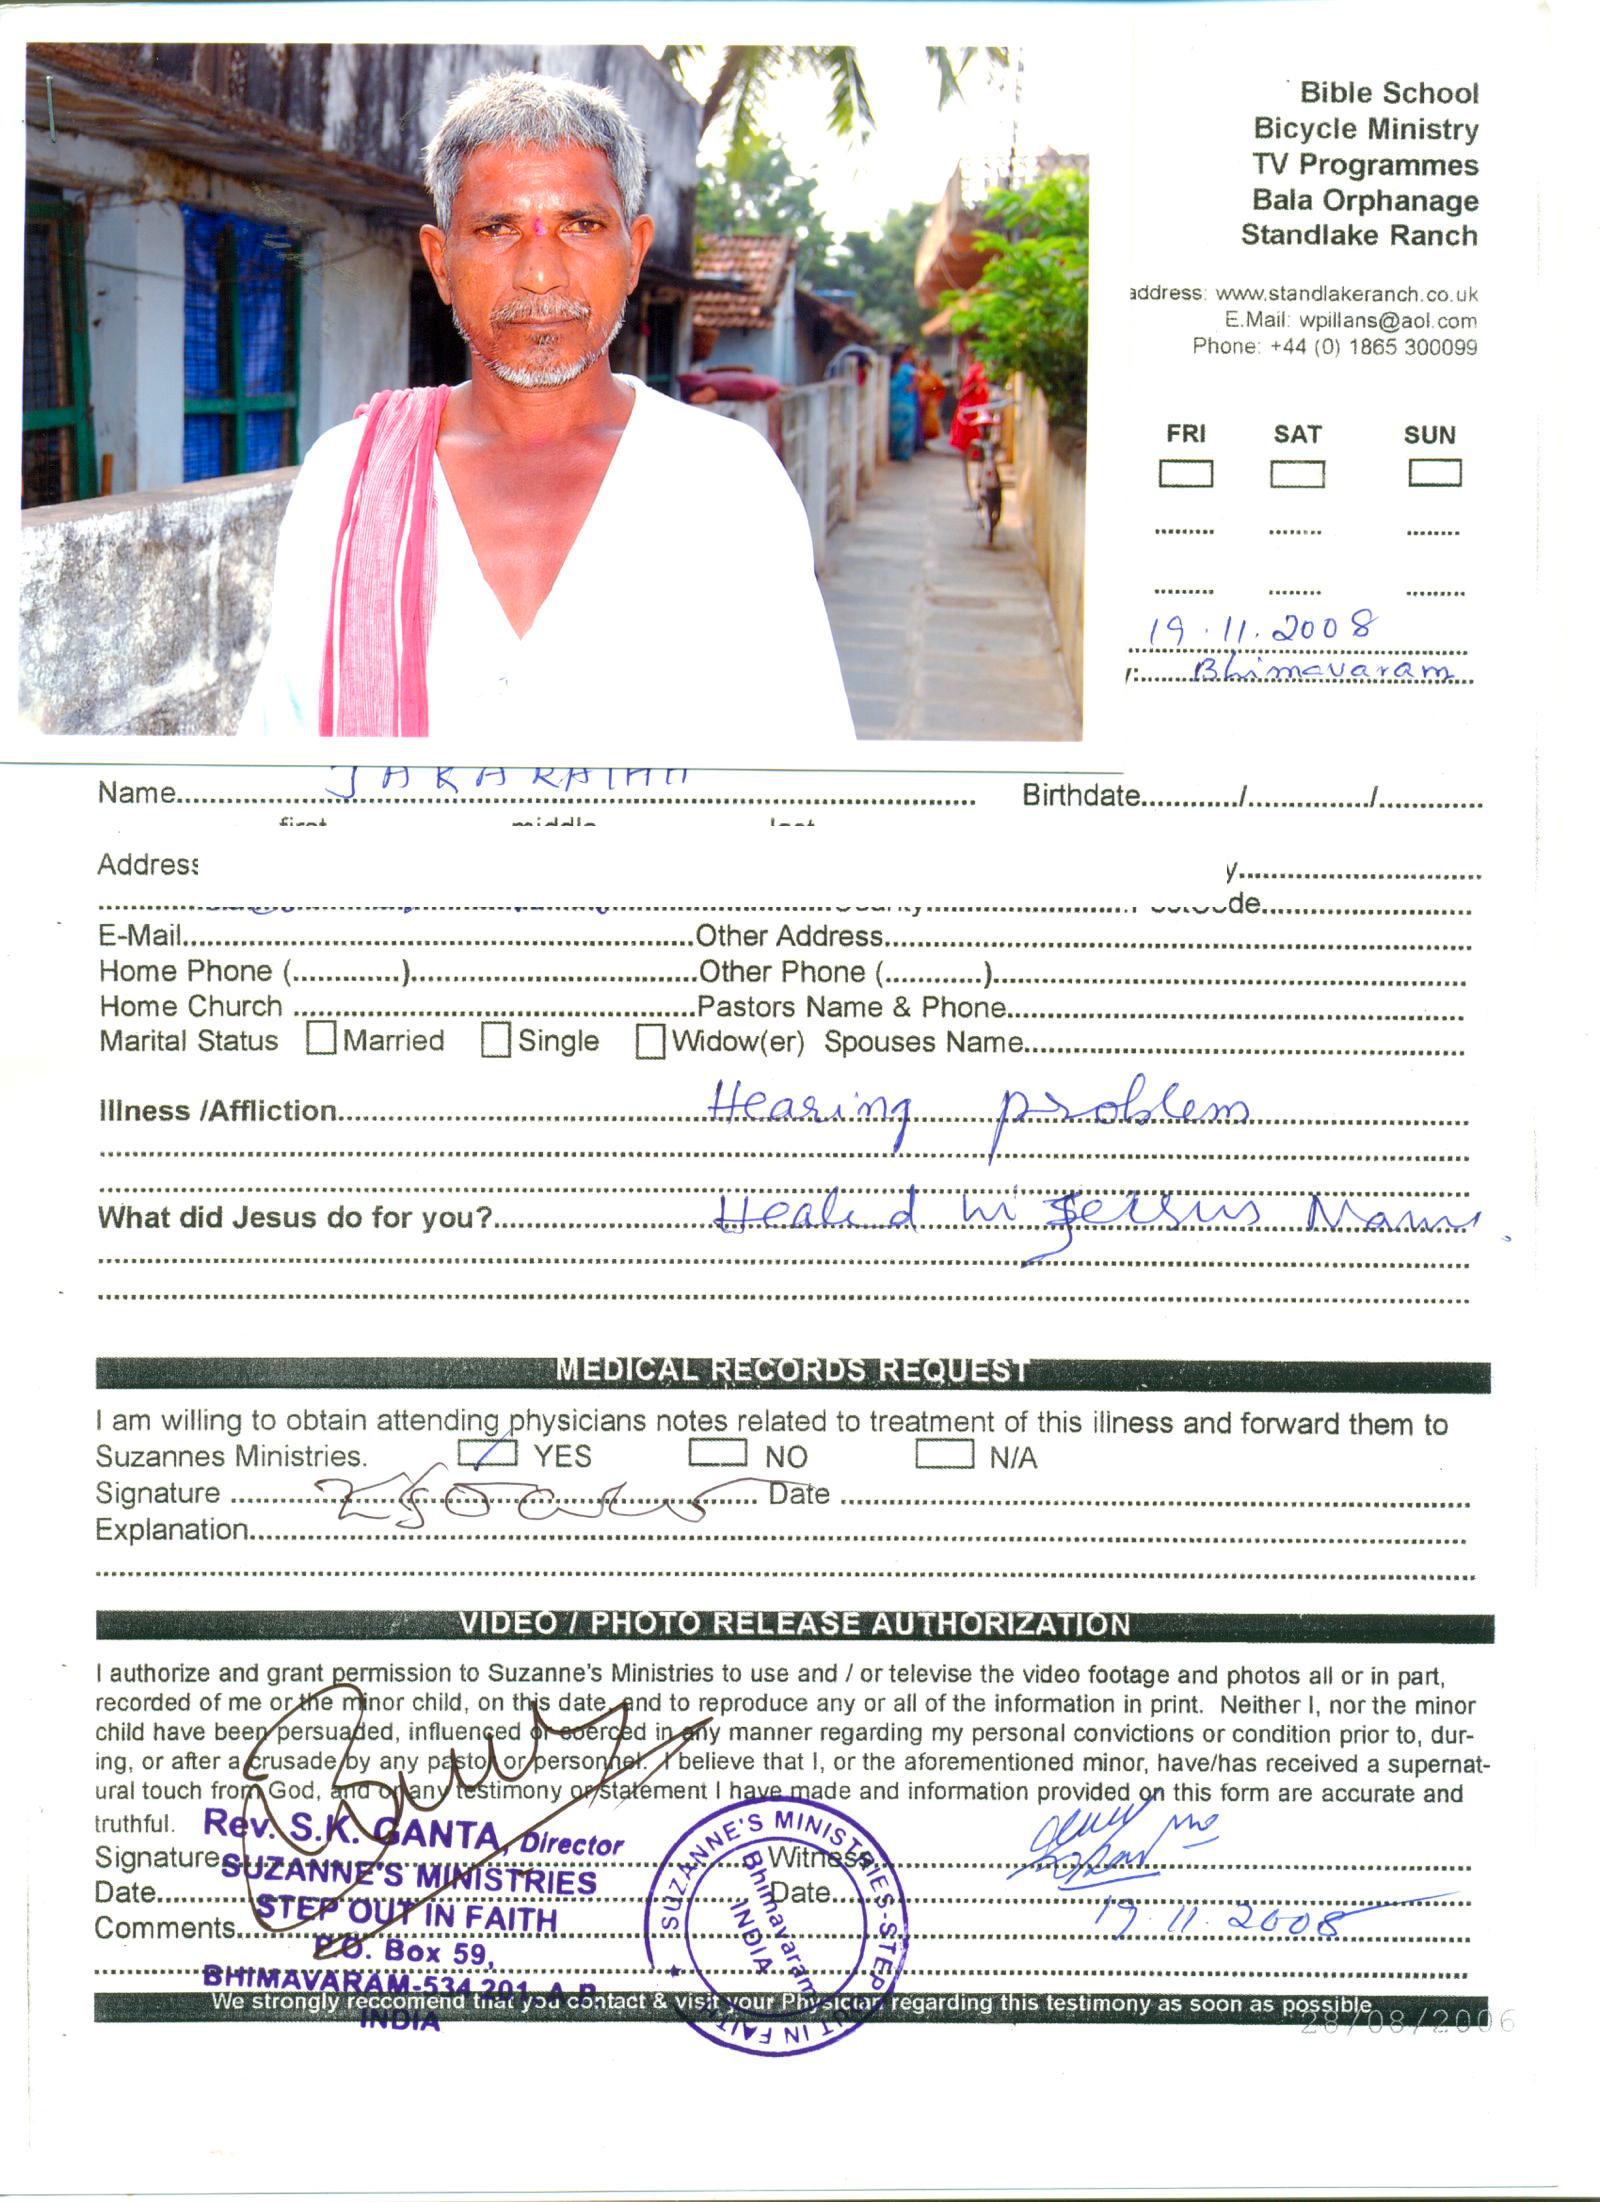 Bible School
Bicycle Ministry
TV Programmes
Bala Orphanage
Standlake Ranch
address: www.standlakeranch.co.uk
E.Mail: wpillans@aol.com
Phone: +44 (0) 1865 300099
FRI SAT SUN
19.11.2008
Bhimavaram
Name Birthdate / /
first middle last
Address
E-Mail Other Address
Home Phone ( ) Other Phone ( )
Home Church Pastors Name & Phone
Marital Status Married Single Widow(er) Spouses Name
Illness /Affliction Hearing problem
What did Jesus do for you? Healed in Jersus Name
MEDICAL RECORDS REQUEST
I am willing to obtain attending physicians notes related to treatment of this illness and forward them to
Suzannes Ministries. YES NO N/A
Signature Date
Explanation
VIDEO / PHOTO RELEASE AUTHORIZATION
I authorize and grant permission to Suzanne's Ministries to use and / or televise the video footage and photos all or in part,
recorded of me or the minor child, on this date, and to reproduce any or all of the information in print. Neither I, nor the minor
child have been persuaded, influenced or coerced in any manner regarding my personal convictions or condition prior to, dur-
ing, or after a crusade by any pastor or personnel. I believe that I, or the aforementioned minor, have/has received a supernat-
ural touch from God, and or any testimony or statement I have made and information provided on this form are accurate and
truthful.
Rev. S.K. GANTA, Director
SUZANNE'S MINISTRIES
STEP OUT IN FAITH
P.O. Box 59,
BHIMAVARAM-534 201, A.P.
INDIA
SUZANNE'S MINISTRIES-STEP OUT IN FAITH
Bhimavaram
INDIA
Signature Witness
Date Date 19.11.2008
Comments
We strongly reccomend that you contact & visit your Physician regarding this testimony as soon as possible
28/08/2006